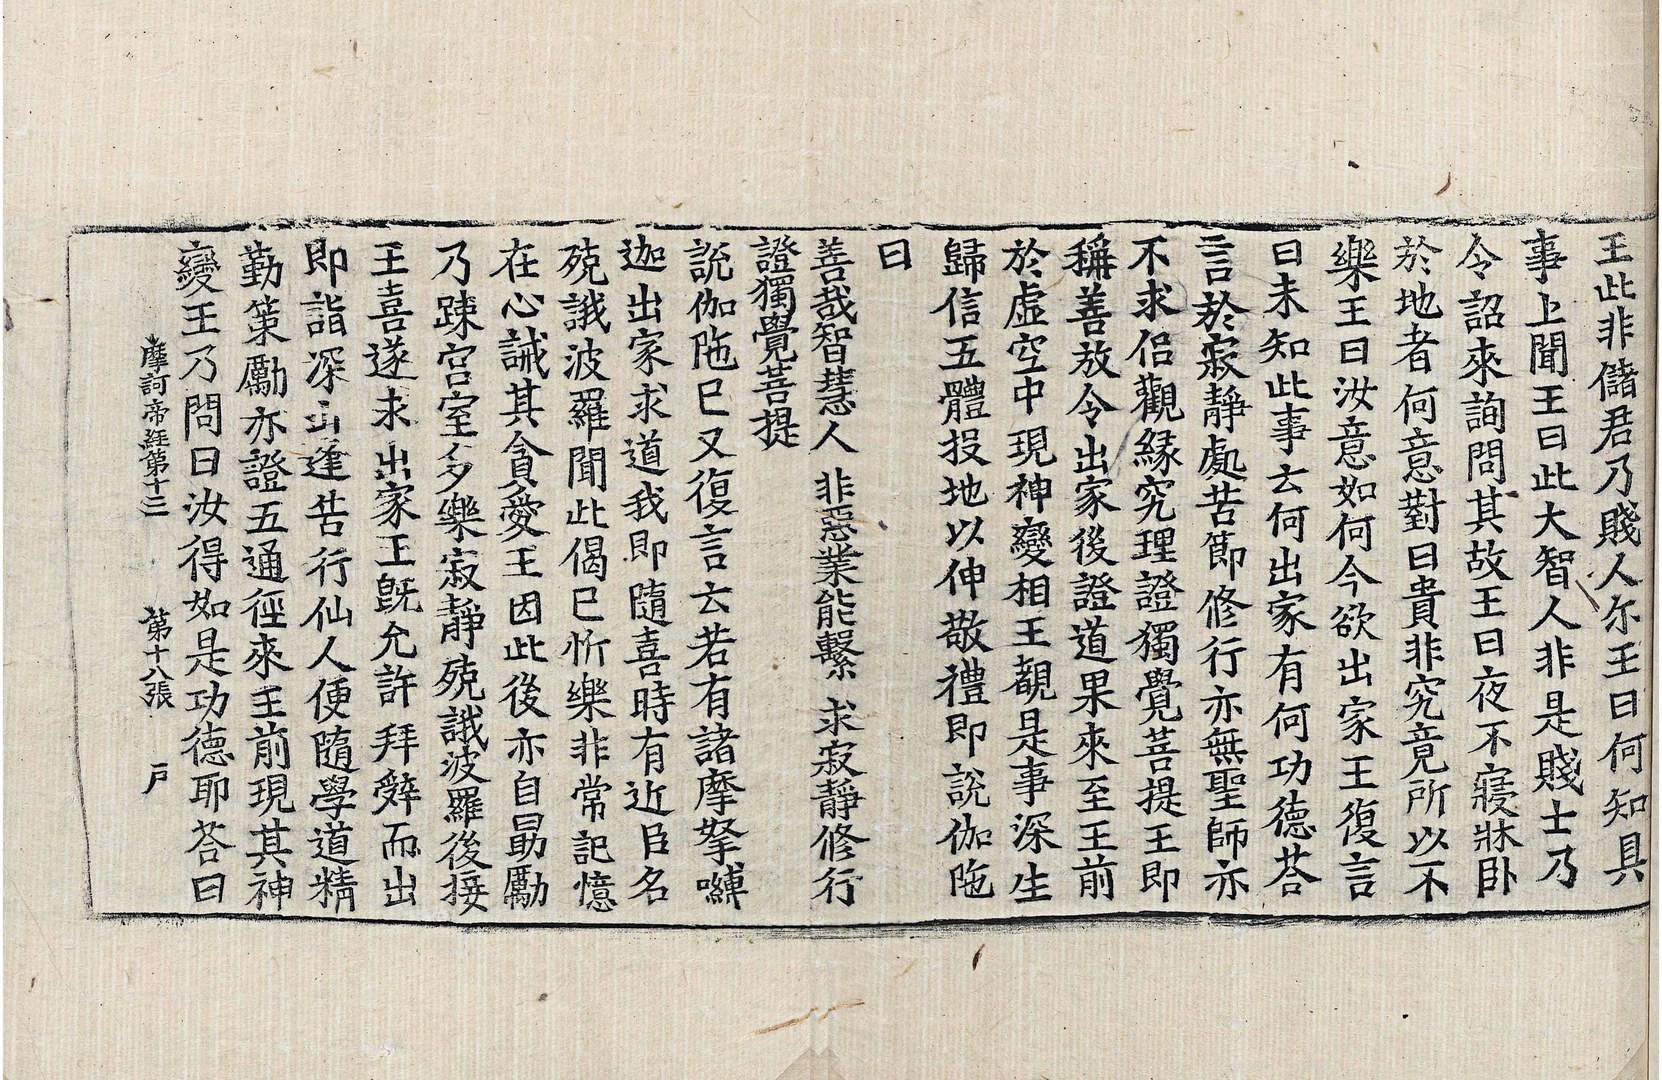 王此非儲君乃賤人尓王曰何知具
事上聞王曰此大智人非是賤士乃
令詔來詢問其故王曰夜不寢牀卧
於地者何意對曰貴非究竟所以不
樂王曰汝意如何今欲出家王復言
曰未知此事去何出家有何功德荅
言於寂靜處苦節修行亦無聖師亦
不求侣觀緣究理證獨覺菩提王即
稱善放令出家後證道果來至王前
於虛空中現神變相王覩是事深生
歸信五體投地以伸敬禮即說伽陁
曰
善哉智慧人 非惡業能繫 求寂靜修行
證獨覺菩提
說伽陁巳又復言去若有諸摩拏嚩
迦出家求道我即隨喜時有近臣名
殑誐波羅聞此偈巳忻樂非常記憶
在心誡其貪愛王因此後亦自勗勵
乃踈宮室多樂寂靜殑誐波羅後接
王喜遂求出家王旣允許拜辤而出
即詣深山逢苦行仙人便隨學道精
勤策勵亦證五通徑來王前現其神
變王乃問曰汝得如是功德耶荅曰
摩訶帝經第十三 第十八張 戶